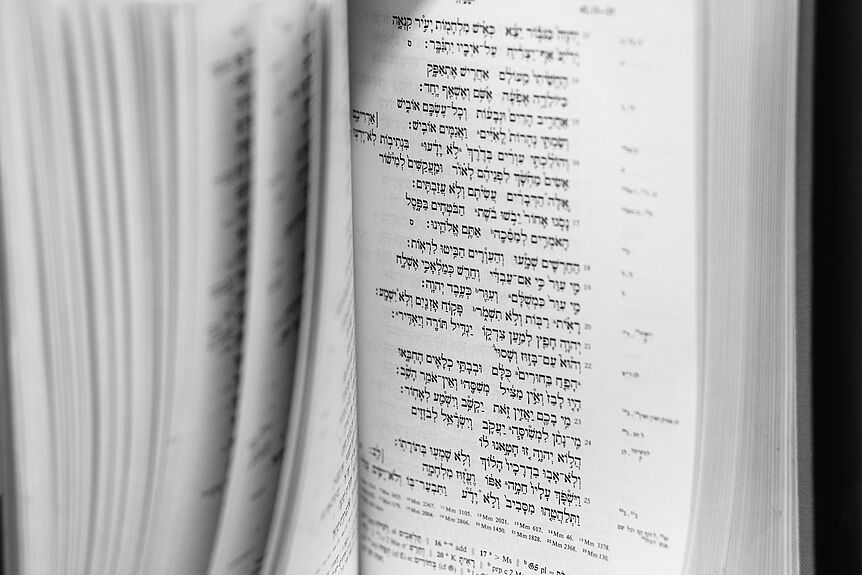 יְהוָה כַּגִּבּוֹר יֵצֵא כְּאִישׁ מִלְחָמוֹת יָעִיר קִנְאָה
יָרִיעַ אַף־יַצְרִיחַ עַל־אֹיְבָיו יִתְגַּבָּר׃ ס
הֶחֱשֵׁיתִי מֵעוֹלָם אַחֲרִישׁ אֶתְאַפָּק
כַּיּוֹלֵדָה אֶפְעֶה אֶשֹּׁם וְאֶשְׁאַף יָחַד׃
אַחֲרִיב הָרִים וּגְבָעוֹת וְכָל־עֶשְׂבָּם אוֹבִישׁ
וְשַׂמְתִּי נְהָרוֹת לָאִיִּים וַאֲגַמִּים אוֹבִישׁ׃
16 וְהוֹלַכְתִּי עִוְרִים בְּדֶרֶךְ לֹא יָדָעוּ בִּנְתִיבוֹת לֹא־יָדְעוּ אַדְרִיכֵם
אָשִׂים מַחְשָׁךְ לִפְנֵיהֶם לָאוֹר וּמַעֲקַשִּׁים לְמִישׁוֹר
אֵלֶּה הַדְּבָרִים עֲשִׂיתִם וְלֹא עֲזַבְתִּים׃
17 נָסֹגוּ אָחוֹר יֵבֹשׁוּ בֹשֶׁת הַבֹּטְחִים בַּפָּסֶל
הָאֹמְרִים לְמַסֵּכָה אַתֶּם אֱלֹהֵינוּ׃ ס
18 הַחֵרְשִׁים שְׁמָעוּ וְהַעִוְרִים הַבִּיטוּ לִרְאוֹת׃
19 מִי עִוֵּר כִּי אִם־עַבְדִּי וְחֵרֵשׁ כְּמַלְאָכִי אֶשְׁלָח
מִי עִוֵּר כִּמְשֻׁלָּם וְעִוֵּר כְּעֶבֶד יְהוָה׃
20 רָאִית רַבּוֹת וְלֹא תִשְׁמֹר פָּקוֹחַ אָזְנַיִם וְלֹא יִשְׁמָע׃
21 יְהוָה חָפֵץ לְמַעַן צִדְקוֹ יַגְדִּיל תּוֹרָה וְיַאְדִּיר׃
22 וְהוּא עַם־בָּזוּז וְשָׁסוּי
הָפֵחַ בַּחוּרִים כֻּלָּם וּבְבָתֵּי כְלָאִים הָחְבָּאוּ
הָיוּ לָבַז וְאֵין מַצִּיל מְשִׁסָּה וְאֵין־אֹמֵר הָשַׁב׃
23 מִי בָכֶם יַאֲזִין זֹאת יַקְשִׁב וְיִשְׁמַע לְאָחוֹר׃
24 מִי־נָתַן לִמְשִׁסָּה יַעֲקֹב וְיִשְׂרָאֵל לְבֹזְזִים
הֲלוֹא יְהוָה זוּ חָטָאנוּ לוֹ
וְלֹא־אָבוּ בִדְרָכָיו הָלוֹךְ וְלֹא שָׁמְעוּ בְּתוֹרָתוֹ׃
25 וַיִּשְׁפֹּךְ עָלָיו חֵמָה אַפּוֹ וֶעֱזוּז מִלְחָמָה
וַתְּלַהֲטֵהוּ מִסָּבִיב וְלֹא יָדָע וַתִּבְעַר־בּוֹ
Mm 2367. Mm 3105. Mm 2021. Mm 617. Mm 46. Mm 3378.
Mm 2866. Mm 1450. Mm 1828. Mm 2368. Mm 130.
16 add ‖ 17 > Ms ‖